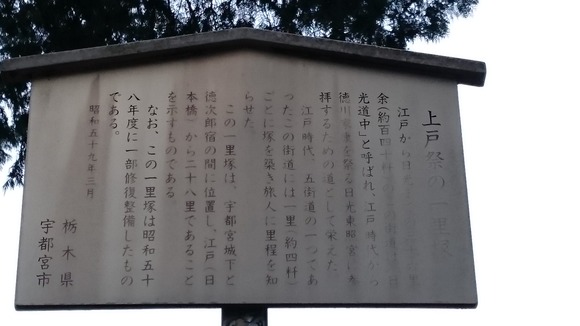 上戸祭の一里塚
江戸から日
余(約百四十
光道中」と呼ばれ、江戸時代から
徳川家康を祭る日光東照宮に参
拝するための道として栄えた。
江戸時代、五街道の一つであ
ったこの街道には一里(約四粁)
ごとに塚を築き旅人に里程を知
らせた。
この一里塚は、宇都宮城下と
徳次郎宿の間に位置し、江戸(日
本橋)から二十八里であること
を示すものである
なお、この一里塚は昭和五十
八年度に一部修復整備したもの
である。
昭和五十九年三月
栃木県
宇都宮市